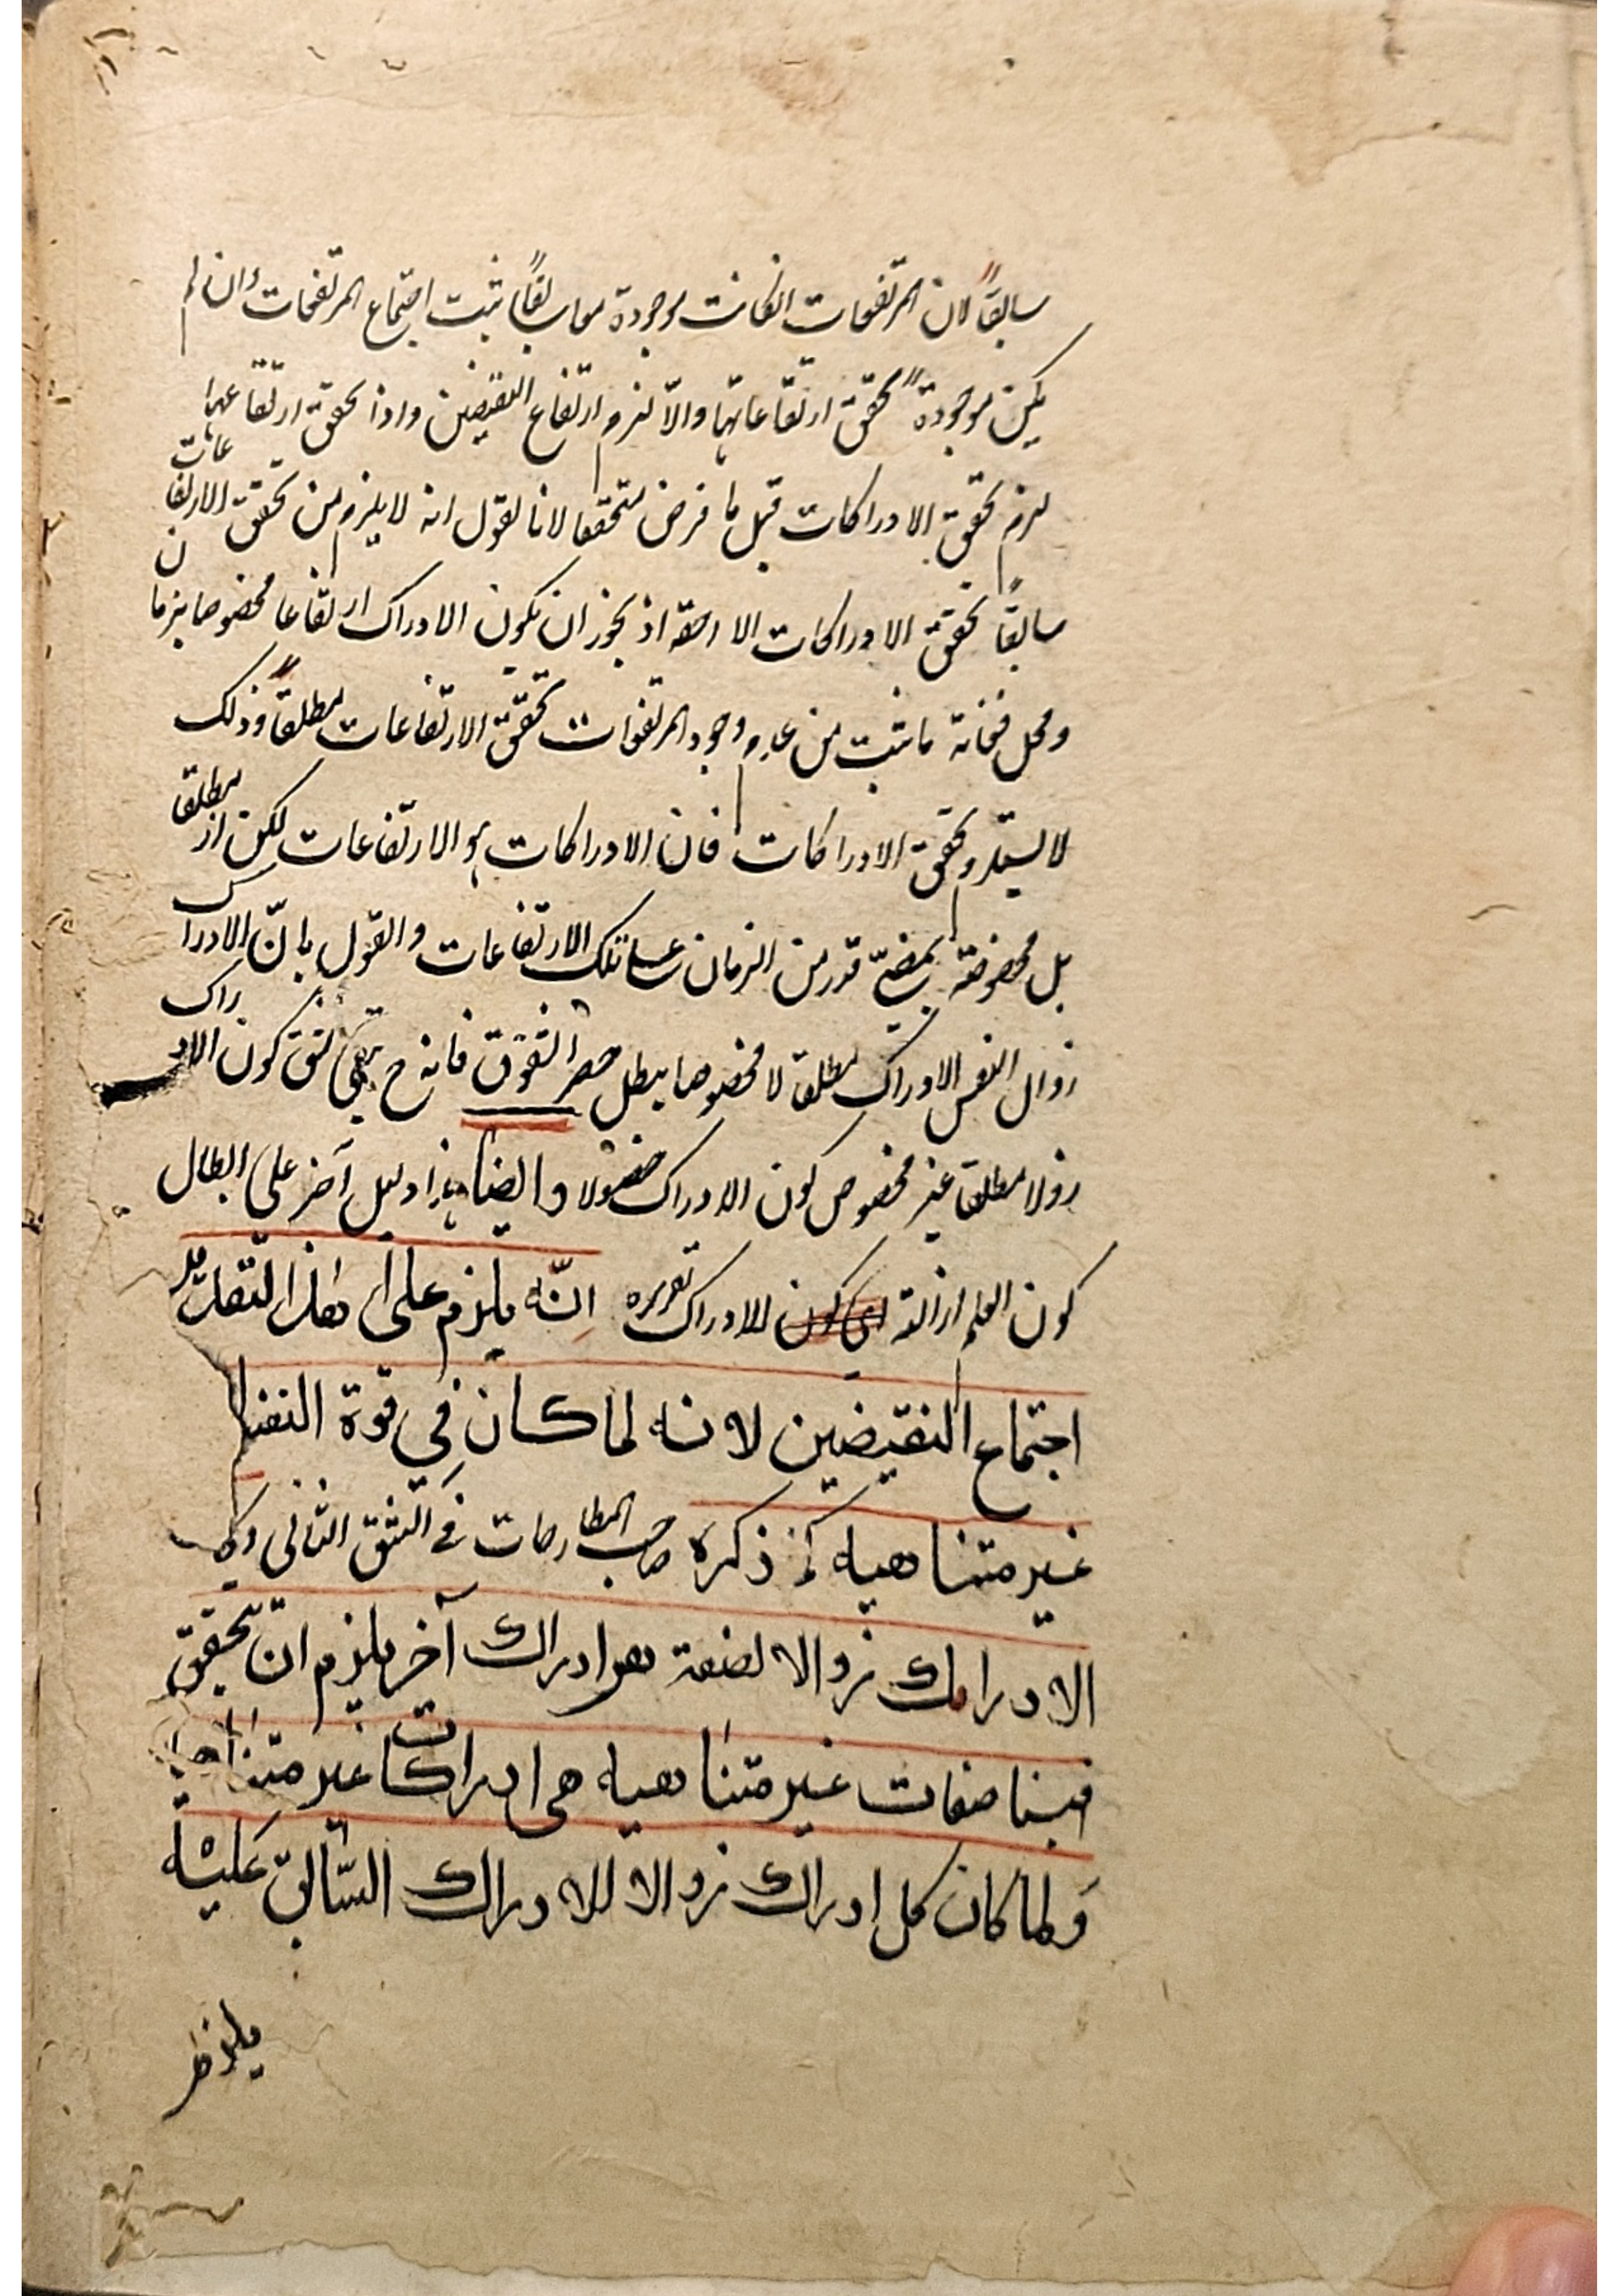 سابقاً لان المرتفعات ان كانت موجودة سابقاً ثبت اجتماع المرتفعات وان لم
يكن موجودة تحقق ارتفاعاتها والّا لزم ارتفاع النقيضين واذا تحقق ارتفاعاتها
لزم تحقق الادراكات قبل ما فرض متحققا لانا نقول انه لا يلزم من تحقق الارتفاعات
سابقاً تحقق الادراكات الاحقه اذ يجوز ان يكون الادراك ارتفاعا مخصوصا بزمان
ومحل فغاية ما ثبت من عدم وجود المرتفعات تحقق الارتفاعات مطلقاً وذلك
لا يستلزم تحقق الادراكات فان الادراكات هو الارتفاعات لكن لا مطلقا
بل مخصوصة بمضيّ قدر من الزمان على تلك الارتفاعات والقول بانّ الادراك
زوال النفس الادراك مطلقا لا مخصوصا يبطل حصر الشقوق فانه ح بقي شق كون الادراك
زولا مطلقا غير مخصوص كون الادراك حصولا وايضا هذا دليل آخر على ابطال
كون العلم ازالة اى كون الادراك تقريره انّه يلزم على هذا التقدير
اجتماع النقيضين لانه لما كان في قوة النفس
غير متناهيه كما ذكره صاحب المطارحات في الشق الثاني
الادراك زوالا لصفة هو ادراك آخر يلزم ان تحقق
فينا صفات غير متناهيه هى ادراكات غير متناهية
ولما كان كل ادراك زوالا للادراك السّابق عليه
يلزم